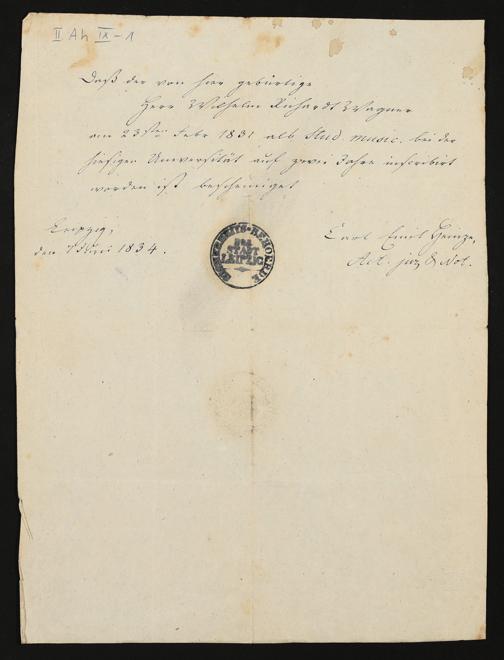 II Ah IX-1
Daß der von hier gebürtige
Herr Wilhelm Richardt Wagner
am 23sten Febr 1831 als Stud music. bei der
hiesigen Universität auf zwei Jahre inscribirt
worden ist bescheiniget
Leipzig,
den 1834.
SICHERHEITS-BEHOERDE
DER
STADT
LEIPZIG
Carl Emil Heinze,
Act. jur. & Not.